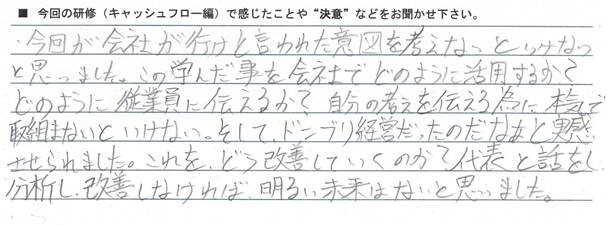 ■ 今回の研修（キャッシュフロー編）で感じたことや“決意”などをお聞かせ下さい。
・今回が会社が行けと言われた意図を考えないといけない
と思いました。この学んだ事を会社でどのように活用するか？
どのように従業員に伝えるか？自分の考えを伝える為に本気で
取組まないといけない。そして、ドンブリ経営だったのだなあと実感
させられました。これを、どう改善していくのか？代表と話をし
分析し、改善しなければ、明るい未来はないと思いました。